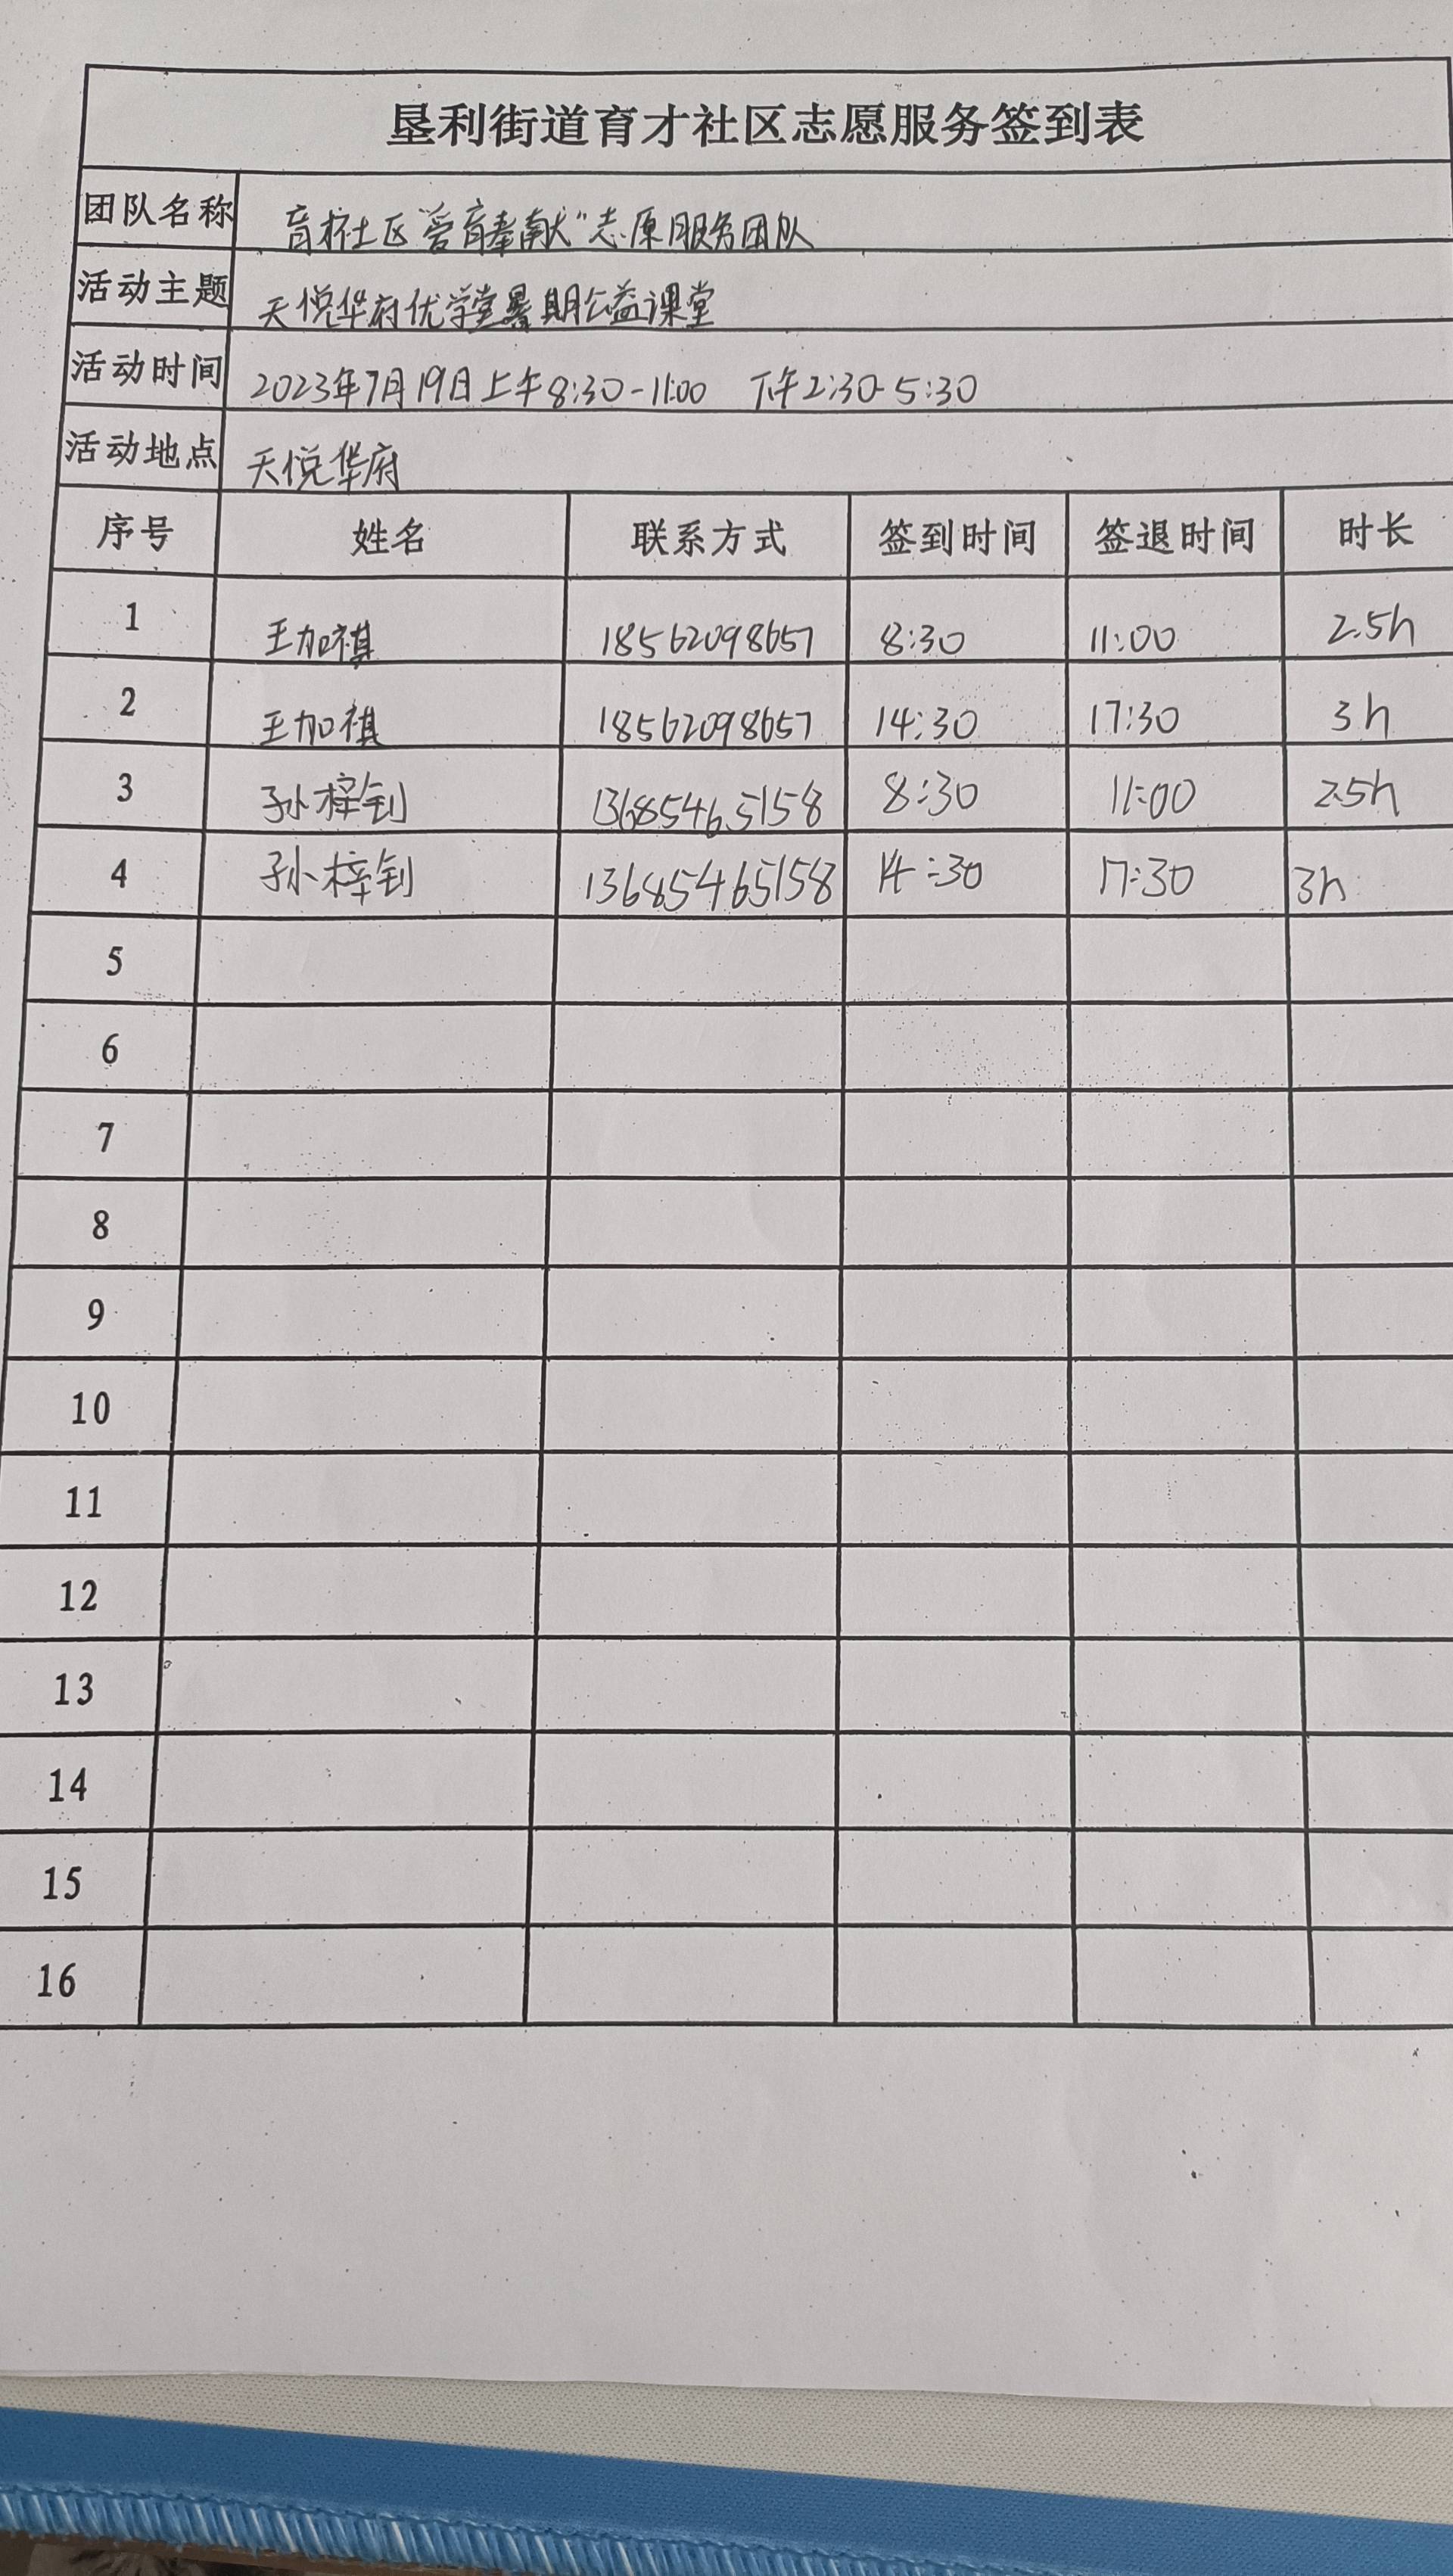 垦利街道育才社区志愿服务签到表
团队名称 育才社区“爱育奉献”志愿服务团队
活动主题 天悦华府优学堂暑期公益课堂
活动时间 2023年7月19日上午8:30-11:00 下午2:30-5:30
活动地点 天悦华府
序号 姓名 联系方式 签到时间 签退时间 时长
1 王加祺 18562098657 8:30 11:00 2.5h
2 王加祺 18562098657 14:30 17:30 3h
3 孙梓钊 13685465158 8:30 11:00 2.5h
4 孙梓钊 13685465158 14:30 17:30 3h
5
6
7
8
9
10
11
12
13
14
15
16